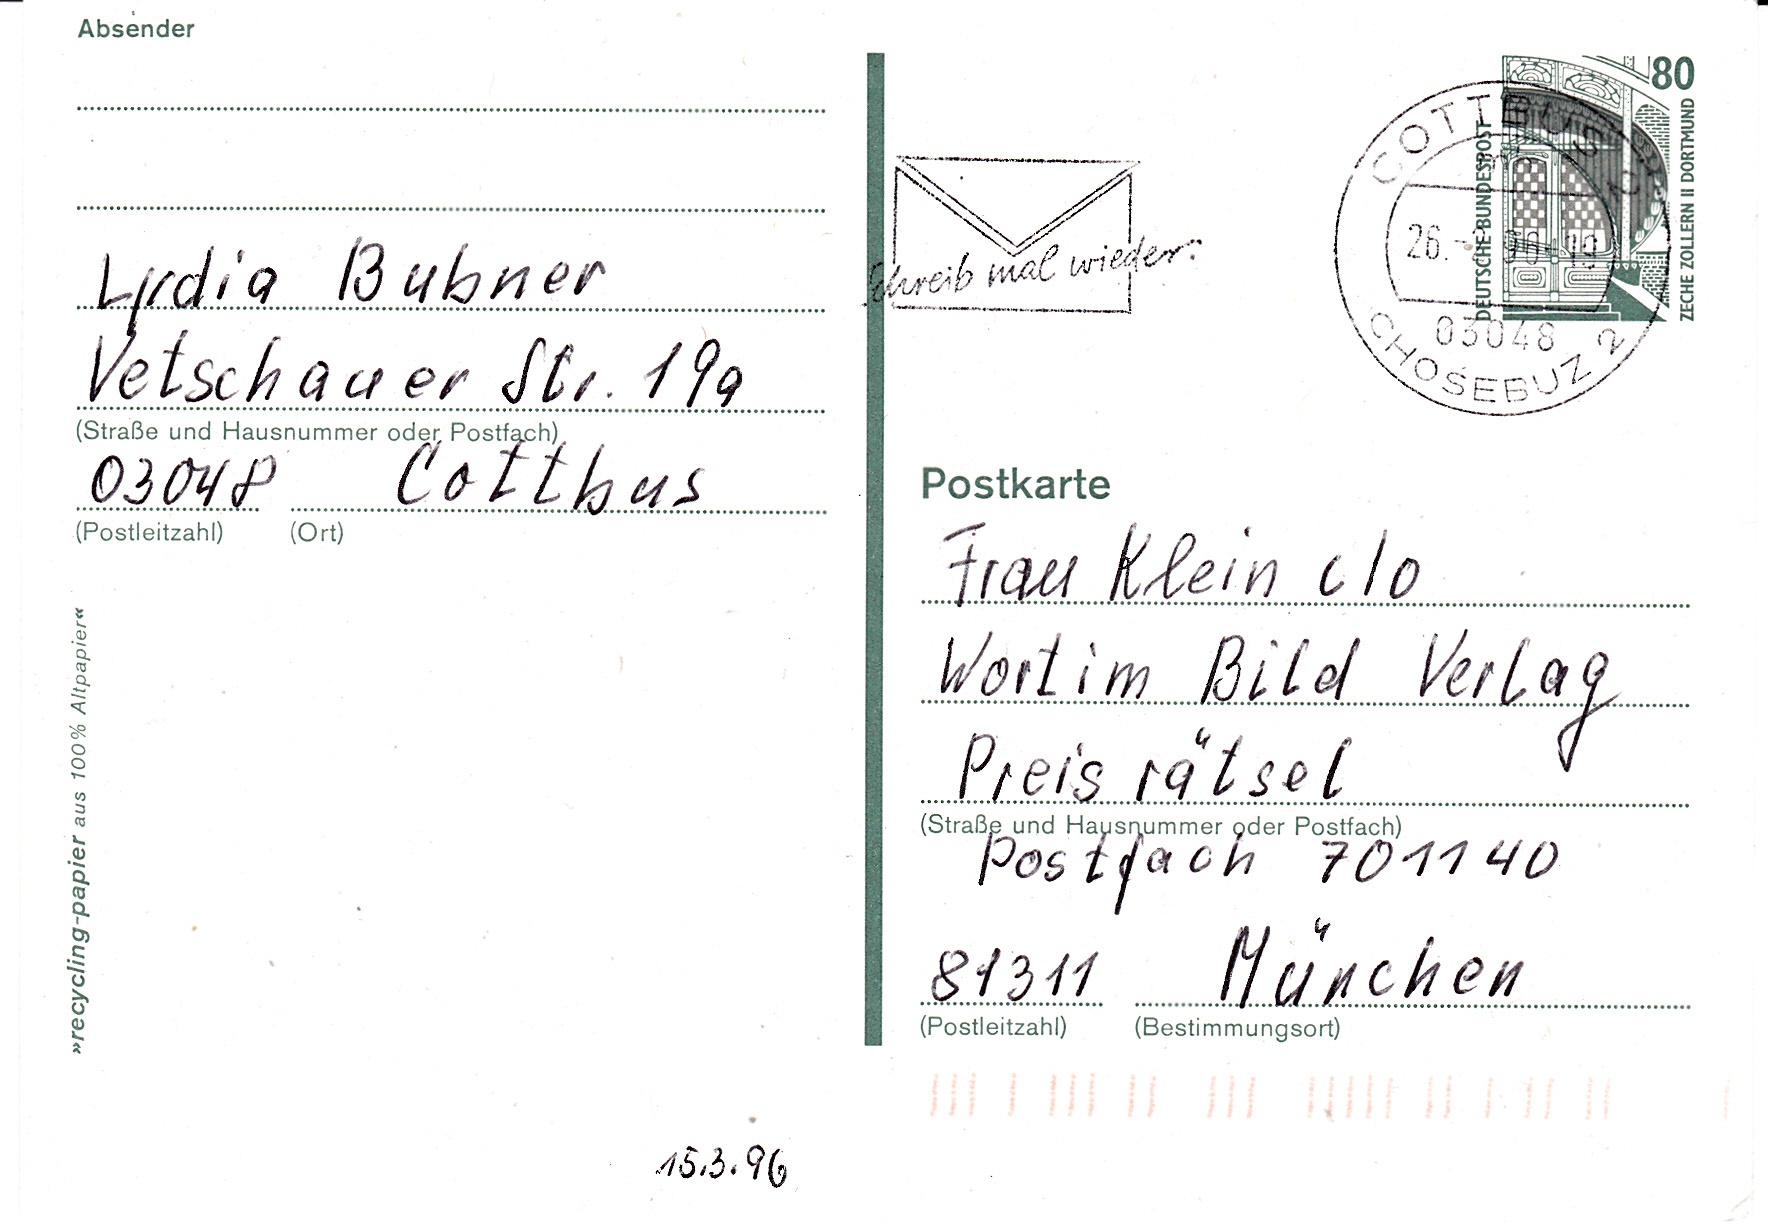 Absender
Lydia Bubner
Vetschauer Str. 19a
(Straße und Hausnummer oder Postfach)
03048 Cottbus
(Postleitzahl) (Ort)
»recycling-papier aus 100% Altpapier«
15.3.96
Schreib mal wieder.
COTTBUS 2
26.
03048
CHOŚEBUZ 2
80
DEUTSCHE BUNDESPOST
ZECHE ZOLLERN II DORTMUND
Postkarte
Frau Klein c/o
Wort im Bild Verlag
Preisrätsel
(Straße und Hausnummer oder Postfach)
Postfach 701140
81311 München
(Postleitzahl) (Bestimmungsort)